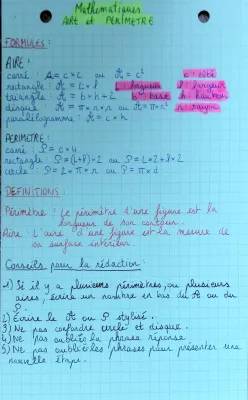 Mathématiques
AIRE et PÉRIMÈTRE
FORMULES :
AIRE :
carré : A = c × c ou A = c² c : côté
rectangle : A = L × l L : longueur l : largeur
triangle : A = b × h ÷ 2 b : base h : hauteur
disque : A = π × r × r ou A = π × r² r : rayon
parallélogramme : A = c × h
PERIMETRE :
carré : P = c × 4
rectangle P = (L+l) × 2 ou P = L × 2 + l × 2
cercle : P = 2 × π × r ou P = π × d
DÉFINITIONS :
Périmètre : Le périmètre d'une figure est la
longueur de son contour.
Aire : L'aire d'une figure est la mesure de
sa surface intérieur.
Conseils pour la rédaction :
1) Si il y a plusieurs périmètres ou plusieurs
aires, écrire un nombre en bas du A ou du
P.
2) Écrire le A ou P stylisé.
3) Ne pas confondre cercle et disque.
4) Ne pas oublier la phrase réponse.
5) Ne pas oublier les phrases pour présenter une
nouvelle étape.